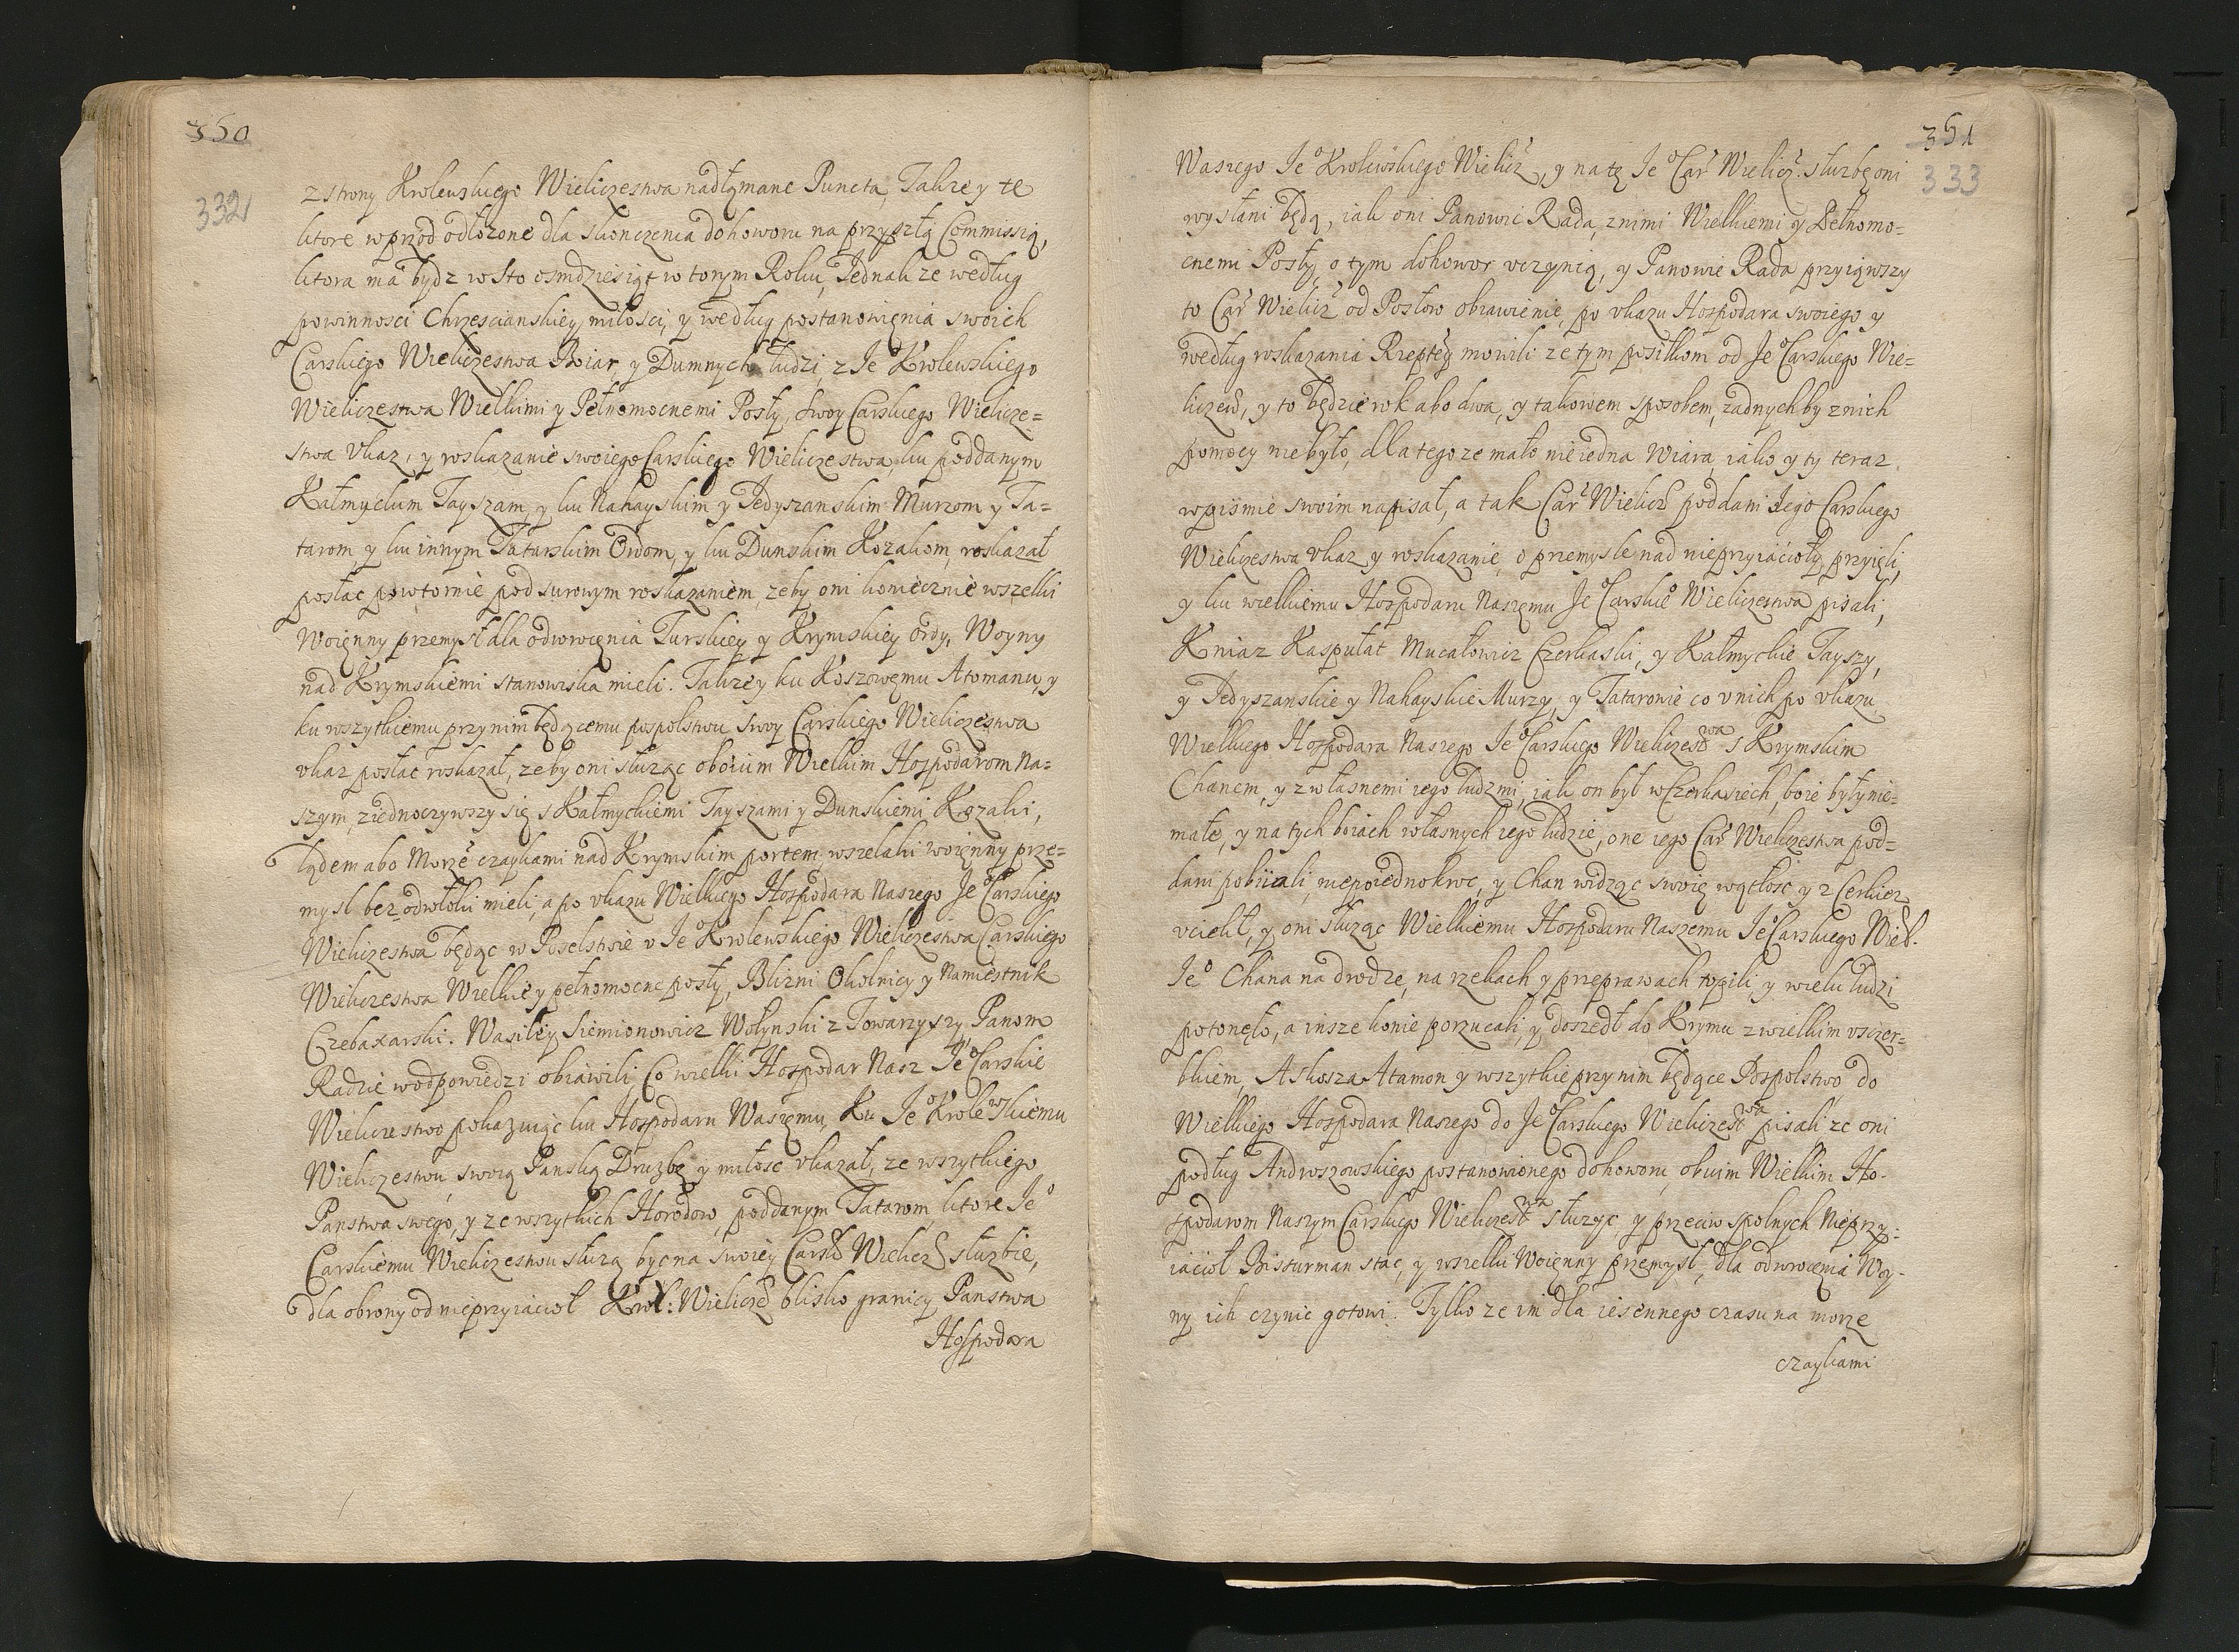 350
332
z strony Krolewskiego Wieliczestwa nadłamane Puncta, Takze y te
ktore w przod odłozone dla skonczenia dohoworu na przyszłą Commissią,
ktora ma bydz w sto osmdziesiąt wtorym Roku, Jednak ze według
powinnosci Chrzescianskiey miłosci, y według postanowięnia swoich
Carskiego Wieliczestwa Boiar y Dumnych ludzi, z Je° Krolewskiego
Wieliczestwa Wielkimi y Pełnomocnemi Posły, swoy Carskiego Wielicze=
stwa Ukaz, y roskazanie swoiego Carskiego Wieliczestwa, ku poddanym
Kałmyckim Tayszam, y ku Nahayskim y Jedyszanskim Murzom y Ta=
tarom y ku innym Tatarskim Ordom, y ku Dunskim Kozakom, roskazał
posłac powtornie pod surowym roskazaniem, zeby oni koniecznie wszelki
Woięnny przemysł dla odwrocęnia Turskiey y Krymskiey ordy, Woyny
nad Krymskiemi stanowiska mieli. Takze y ku Koszowęmu Atomanu, y
ku wszytkiemu przy nim będącemu pospolstwu swoy Carskiego Wieliczestwa
ukaz posłac roskazał, zeby oni słuząc oboium Wielkim Hospodarom Na=
szym, ziednoczywszy się s Kałmyckiemi Tayszami y Dunskiemi Kozaki,
lądem abo Morzę czaykami nad Krymskim portem wszelaki woięnny prze=
mysl bez odwłoki mieli, a po ukazu Wielkiego Hospodara Naszego Je° Carskiego
Wieliczestwa będąc w Poselstwie u Je° Krolewskiego Wieliczestwa Carskiego
Wieliczestwa Wielkie y pełnomocne posły, Blizni Okolnicy y Namiestnik
Czebaxarski. Wasiley Siemionowicz Wołynski z Towarzyszy, Panom
Radzie w odpowiedzi obiawili, Co wielki Hospodar Nasz Je° Carskie
Wieliczestwo pokazuiąc ku Hospodaru Waszęmu, Ku Je° Krolewskiemu
Wieliczestwu, swoią Panską Druzbę y miłosc ukazał, ze wszytkiego
Panstwa swego, y ze wszytkich Horodow, poddanym Tatarom, ktore Je°
Carskiemu Wieliczestwu słuzą byc na swoiey Carsk Wielicz słuzbie,
dla obrony od nieprzyiacioł Krol: Wielicz blisko granicy Panstwa
Hospodara
351
333
Waszego Je° Krolewskiego Wielicz, y na tę Je° Car Wielicz. słuzbę oni
wysłani będą, iak oni Panowie Rada, z nimi Wielkiemi y Pełnomo=
cnemi Posły, o tym dohowor uczynią, y Panowie Rada przyiąwszy
to Car Wielicz od Posłow obiawienie, po ukazu Hospodara swoiego y
według roskazania Rzeptey mowili ze tym posiłkom od Je° Carskiego Wie=
liczew, y to będzie rok abo dwa, y takowem sposobem, zadnych by z nich
pomocy nie było, dla tego ze mało nie iedna Wiara, iako y ty teraz
w piśmie swoim napisał, a tak Car Wielicz poddani Jego Carskiego
Wieliczestwa ukaz y roskazanie, o przemysle nad nieprzyiacioły przyięli,
y ku wielkiemu Hospodaru Naszęmu Je° Carskie° Wieliczestwa pisali,
Kniaz Kaspułat Mucałowicz Czerkaski, y Kałmyckie Tayszy,
y Jedyszanskie y Nahayskie Murzy, y Tatarowie co u nich po ukazu
Wielkiego Hospodara Naszego Je° Carskiego Wieliczestwa s Krymskim
Chanem, y z własnemi iego ludzmi, iak on był w Czerkasiech, boie były nie=
małe, y na tych boiach własnych iego ludzie, one iego Car Wieliczestwa pod=
dani pobiiali, niepoiednokroc, y Chan widząc swoię wątłosc y z Cerkiez
uciekł, y oni słuząc Wielkiemu Hospodaru Naszemu Je° Carskiego Wiel.
Je° Chana na drodze, na rzekach y przeprawach topili, y wielu ludzi
potonęło, a insze konie porzucali, y doszedł do Krymu z wielkim uszczer=
bkiem, A s kosza Atamon y wszytkie przy nim będące Pospolstwo do
Wielkiego Hospodara Naszego do Je° Carskiego Wieliczestwa pisali ze oni
podług Androszowskiego postanowionego dohoworu, obuim Wielkim Ho-
spodarom Naszym Carskiego Wieliczestwa słuząc, y przeciw spolnych Nieprzy-
iacioł Bissurman stac, y wszelki Woięnny przemysł, dla odwrocęnia Woy-
ny ich czynic gotowi. Tylko ze im dla iesiennego czasu na morze
czaykami